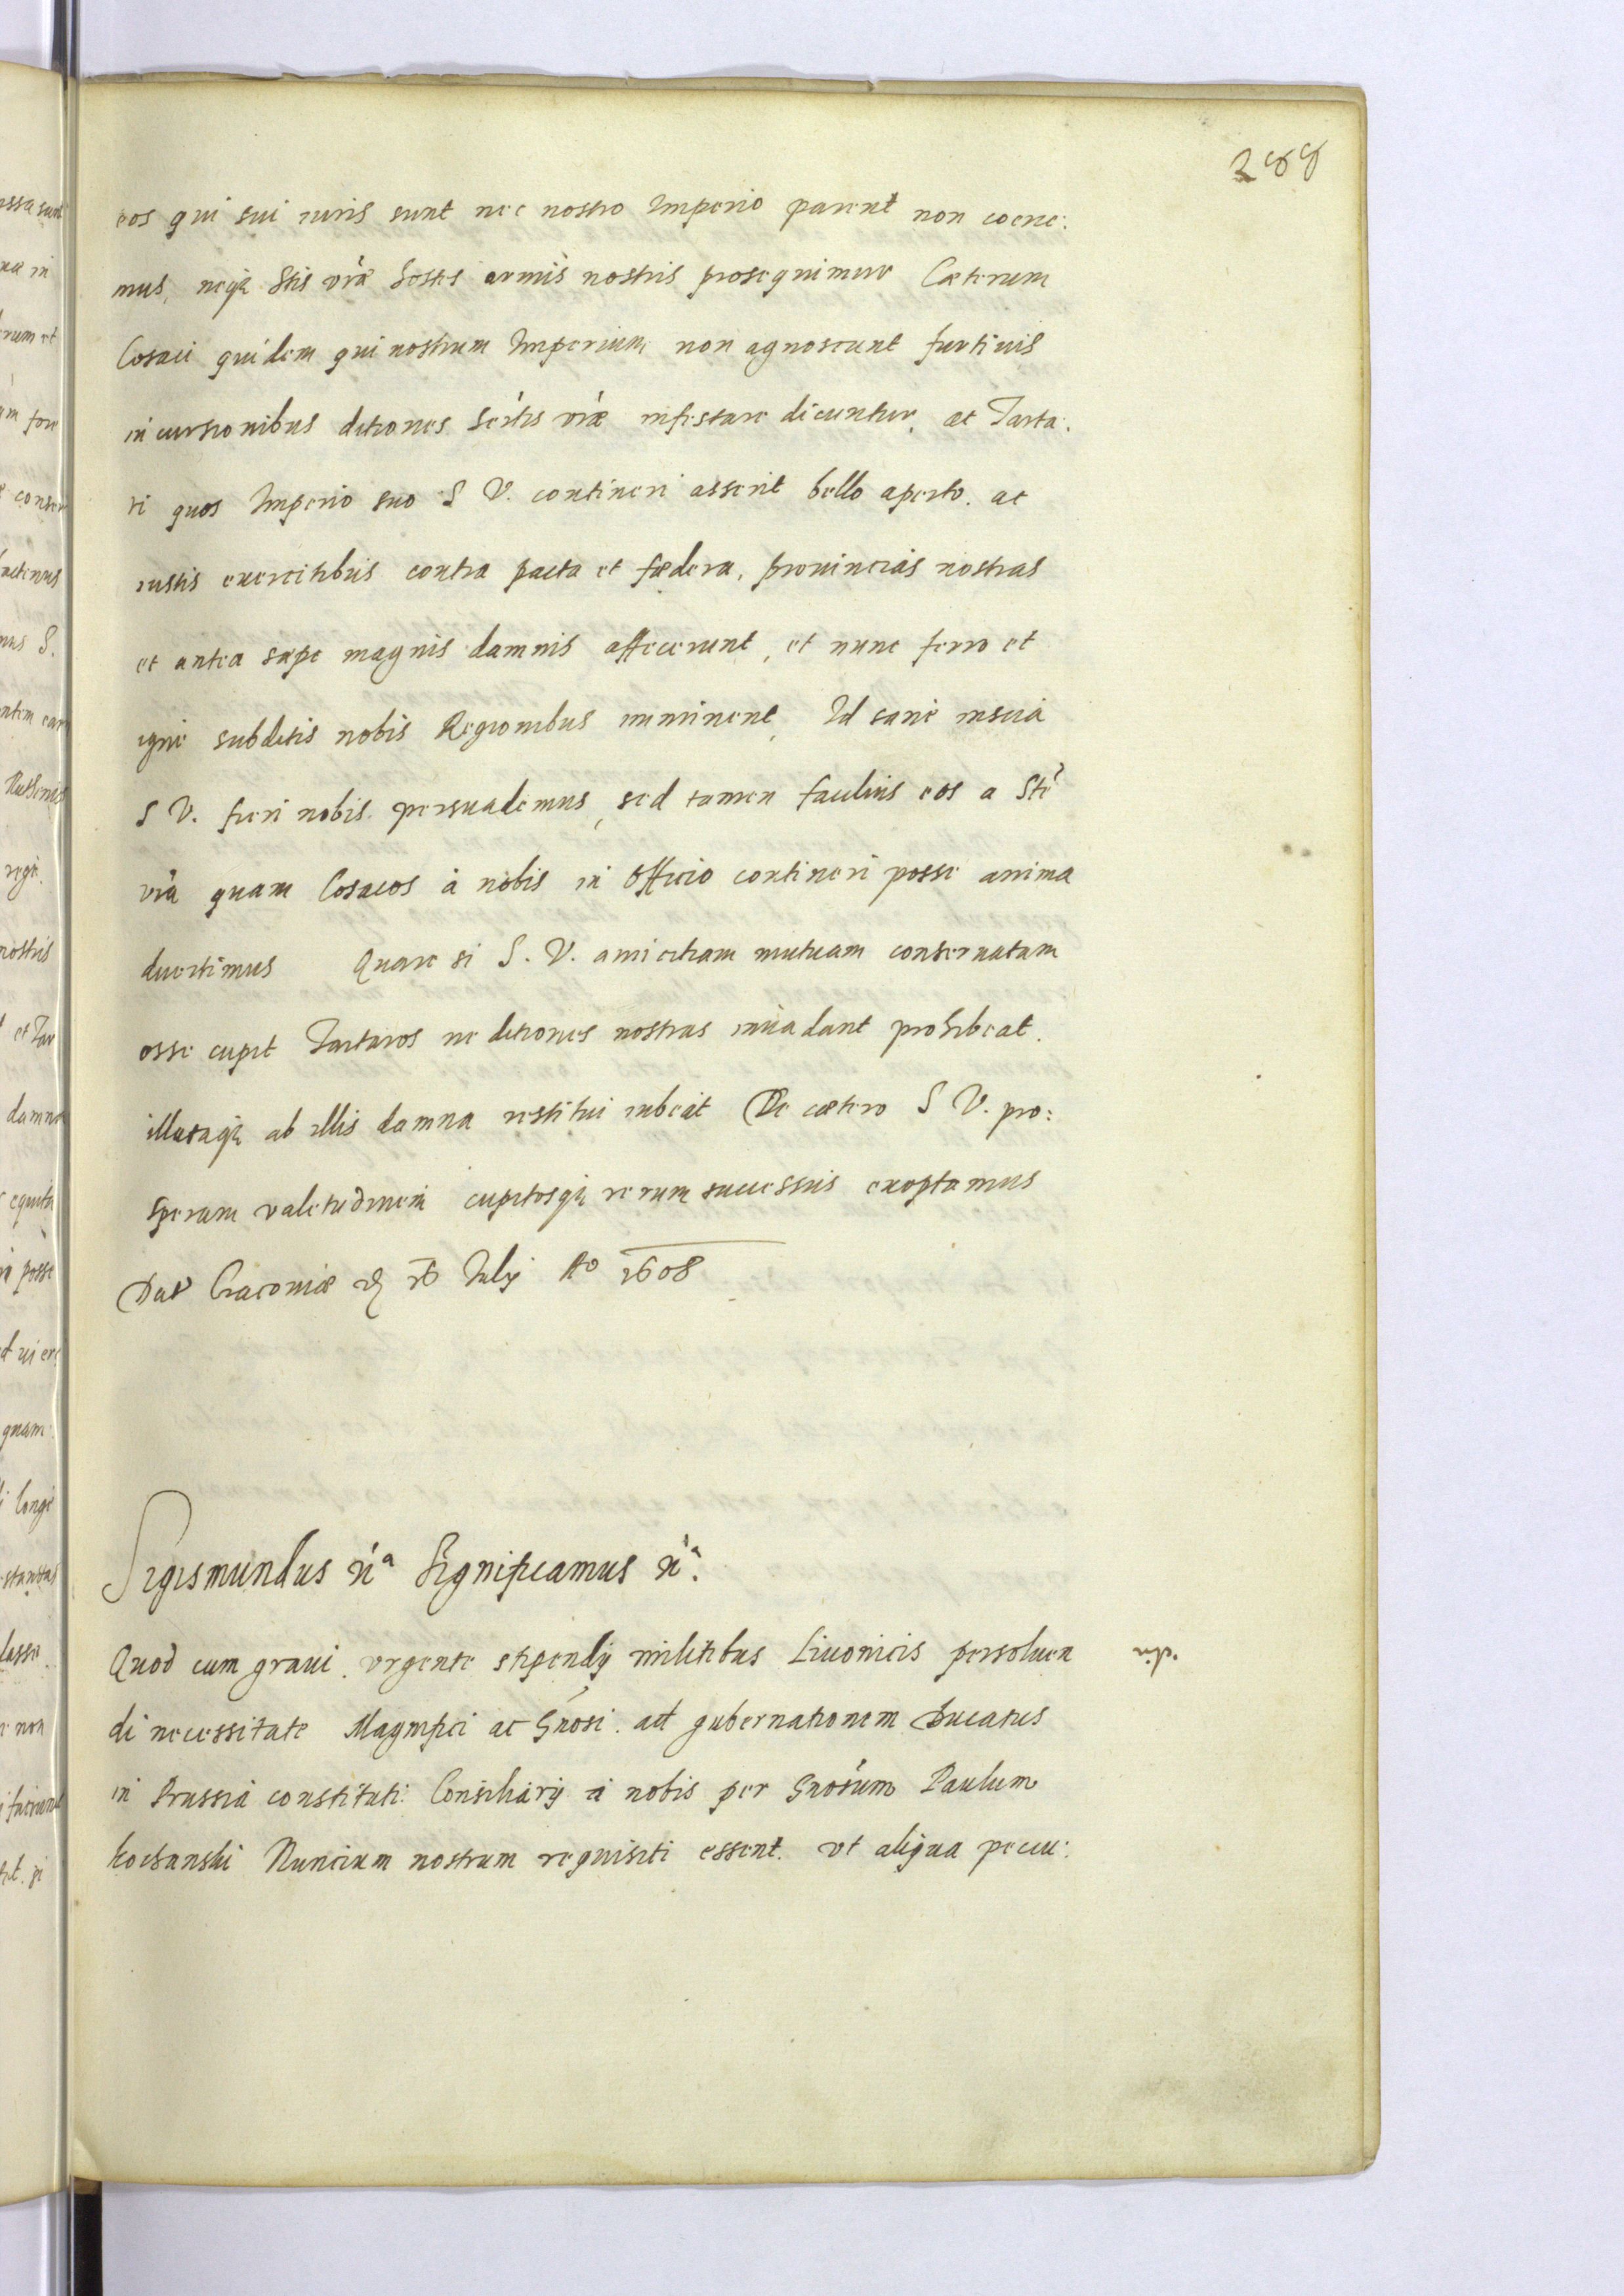 288
eos qui sui iuris sunt nec nostro Imperio parent non coerce:
mus, neqȝ Stis vrae hostes armis nostris prosequimur Caeterum
Cosaci quidem qui nostrum Imperium non agnoscunt furtiuis
incursionibus ditiones Sertis vrae infestare dicuntur, at Tarta:
ri quos Imperio suo S V. contineri asserit bello aperto. ac
iustis exercitibus contra pacta et foedera, prouincias nostras
et antea saepe magnis damnis affecerunt, et nunc ferro et
igne subditis nobis Regionibus imminent, Id sane inscia
S V. fieri nobis persuademus, sed tamen facilius eos a Ste
vra quam Cosacos à nobis in officio contineri posse anima
duertimus Quare si S. V. amicitiam mutuam conseruatam
esse cupit Tartaros ne ditiones nostras inuadant prohibeat.
illataqȝ ab illis damna restitui iubeat De caetero S V. pro:
speram valetudinem cupitosqȝ rerum successus exoptamus
Dat Cracouiae 26 July Ao 1608
Sigismundus ra Significamus ra.
Quod cum graui. vrgente stipendij militibus Liuonicis persoluen
di necessitate Magnifici ac Gnosi. ad gubernationem Ducatus
in Prussia constituti: Consiliarij à nobis per Gnosum Paulum
Kochanski Nuncium nostrum requisiti essent. vt aliqua pecu: